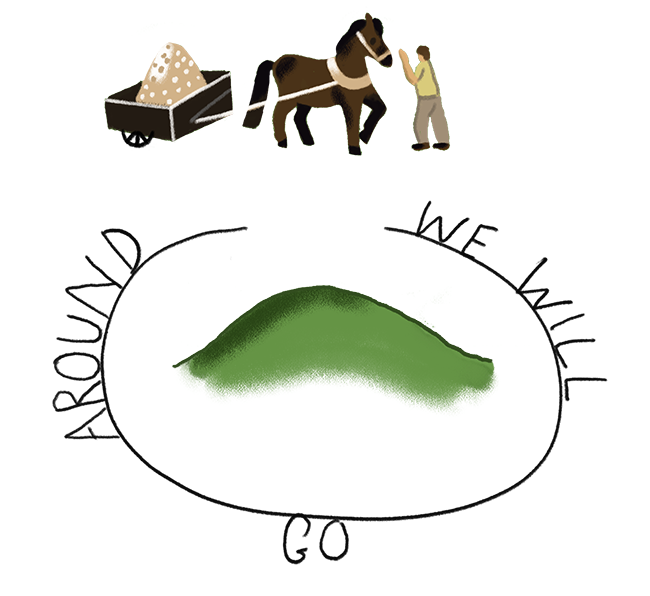 WE WILL
GO
AROUND